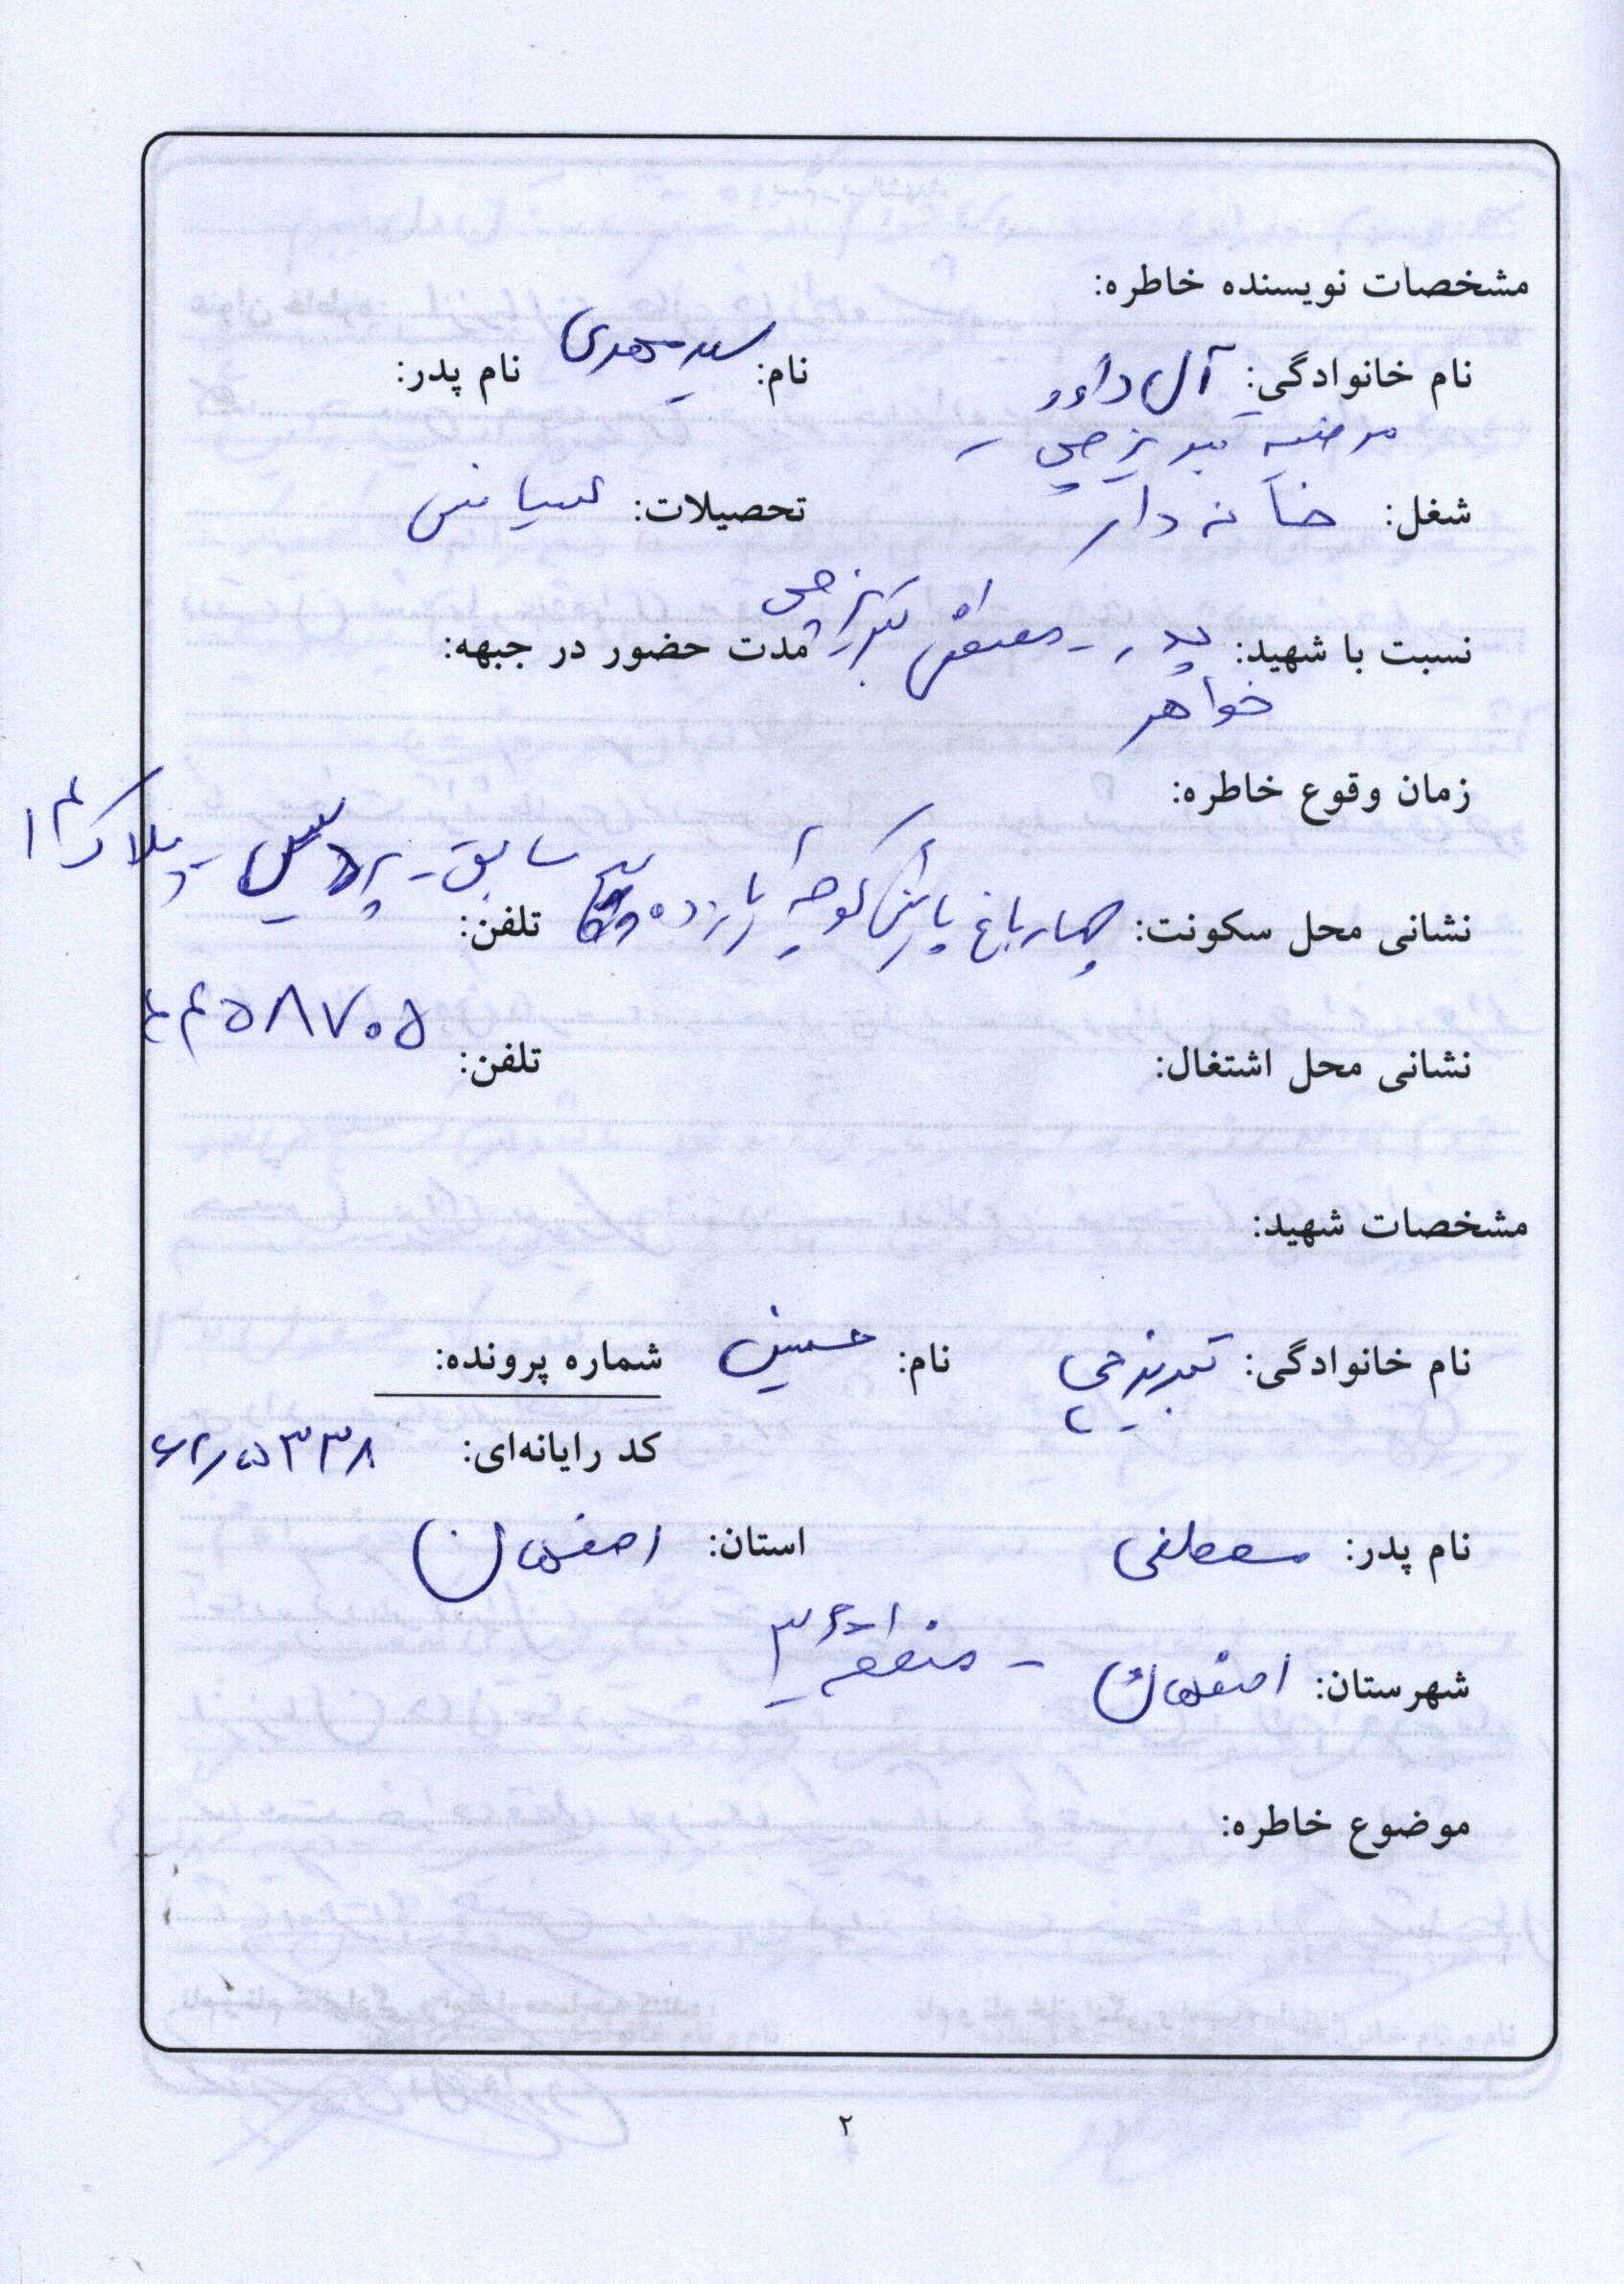 مشخصات نویسنده خاطره:
نام خانوادگی: آل داود نام: سید مهدی نام پدر:
مرضیه تبریزچی -
شغل: خانه دار تحصیلات: لیسانس
نسبت با شهید: پدر - مصطفی تبریزچی مدت حضور در جبهه:
خواهر
زمان وقوع خاطره:
نشانی محل سکونت: چهارباغ پائین کوچه سابق - پردیس - پلاک ۱۴ تلفن:
۵۸۷۰۵
نشانی محل اشتغال: تلفن:
مشخصات شهید:
نام خانوادگی: تبریزچی نام: حسین شماره پرونده:
کد رایانه‌ای: ۶۲۰۵۳۳۸
نام پدر: مصطفی استان: اصفهان
شهرستان: اصفهان - منطقه ۳
موضوع خاطره:
۲